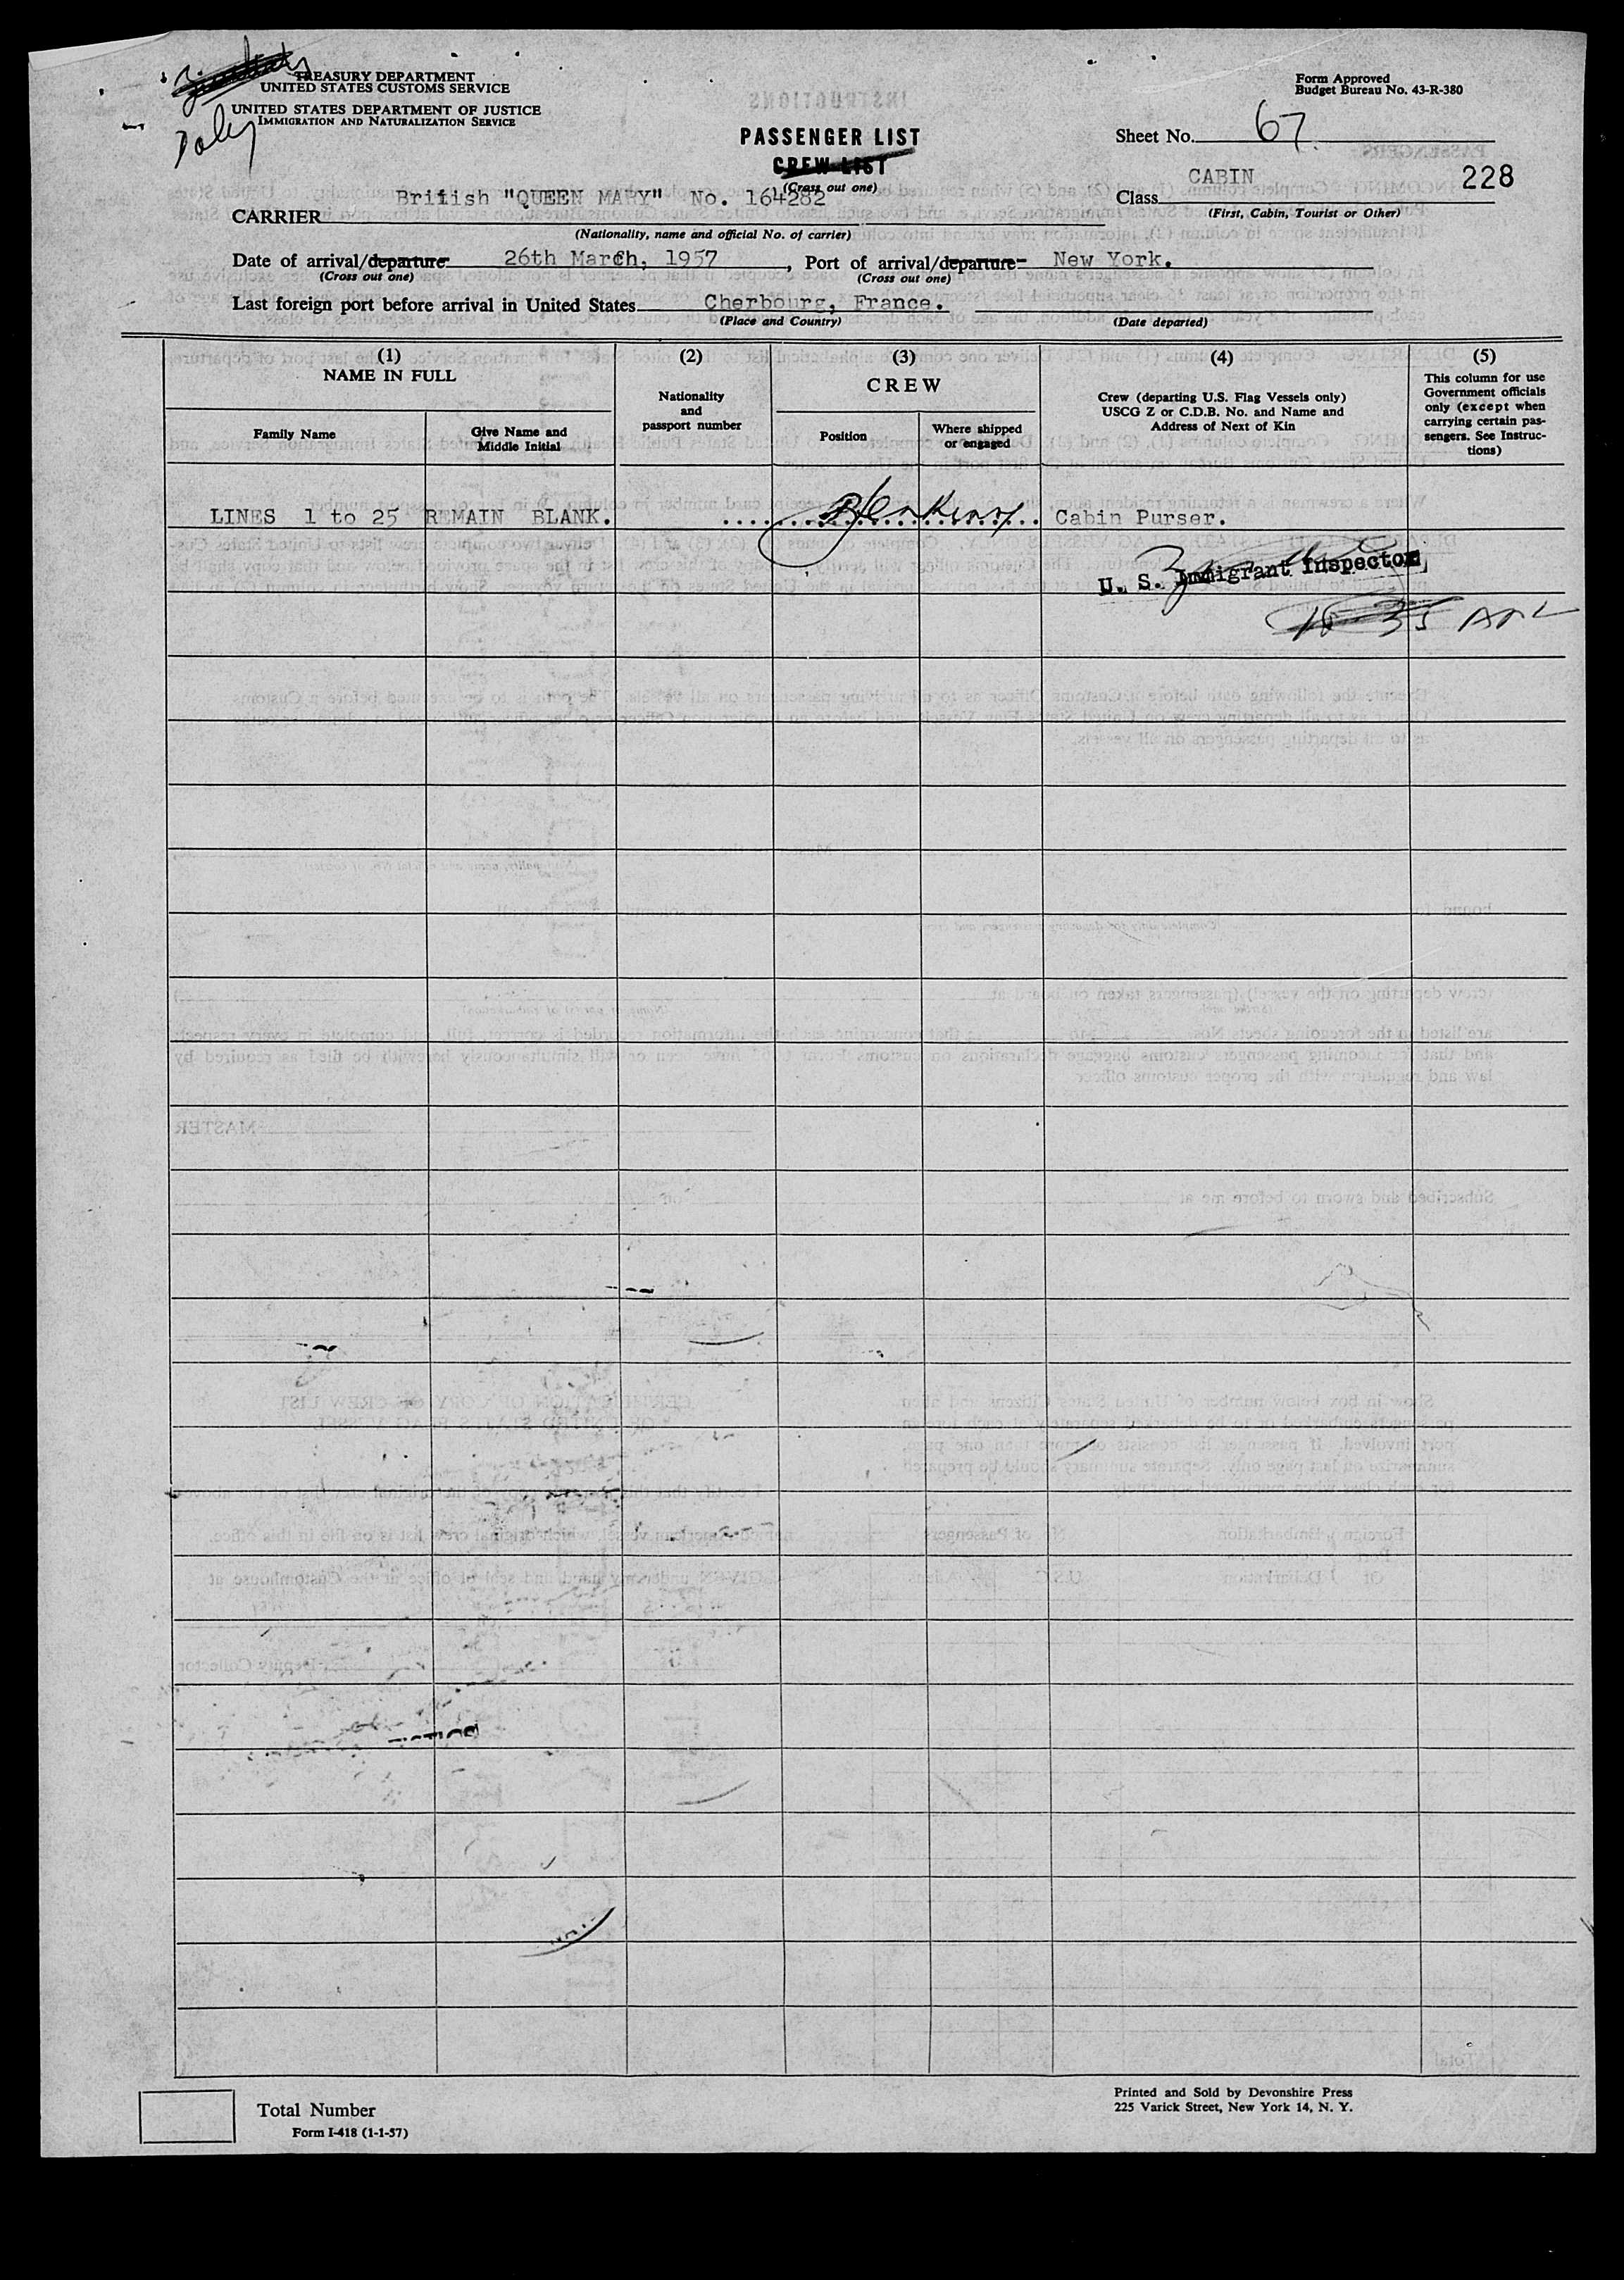 TREASURY DEPARTMENT
UNITED STATES CUSTOMS SERVICE
UNITED STATES DEPARTMENT OF JUSTICE
IMMIGRATION AND NATURALIZATION SERVICE
Daley
Form Approved
Budget Bureau No. 43-R-380
PASSENGER LIST
CREW LIST
(Cross out one)
Sheet No. 67
228
Class CABIN
(First, Cabin, Tourist or Other)
CARRIER British "QUEEN MARY" No. 164282
(Nationality, name and official No. of carrier)
Date of arrival/departure 26th March, 1957, Port of arrival/departure New York.
(Cross out one) (Cross out one)
Last foreign port before arrival in United States Cherbourg, France.
(Place and Country) (Date departed)
(1)
NAME IN FULL
Family Name
Give Name and
Middle Initial
(2)
Nationality
and
passport number
(3)
CREW
Position
Where shipped
or engaged
(4)
Crew (departing U.S. Flag Vessels only)
USCG Z or C.D.B. No. and Name and
Address of Next of Kin
(5)
This column for use
Government officials
only (except when
carrying certain pas-
sengers. See Instruc-
tions)
LINES 1 to 25 REMAIN BLANK. Cabin Purser.
U. S. Immigrant Inspector
Total Number
Form I-418 (1-1-57)
Printed and Sold by Devonshire Press
225 Varick Street, New York 14, N. Y.